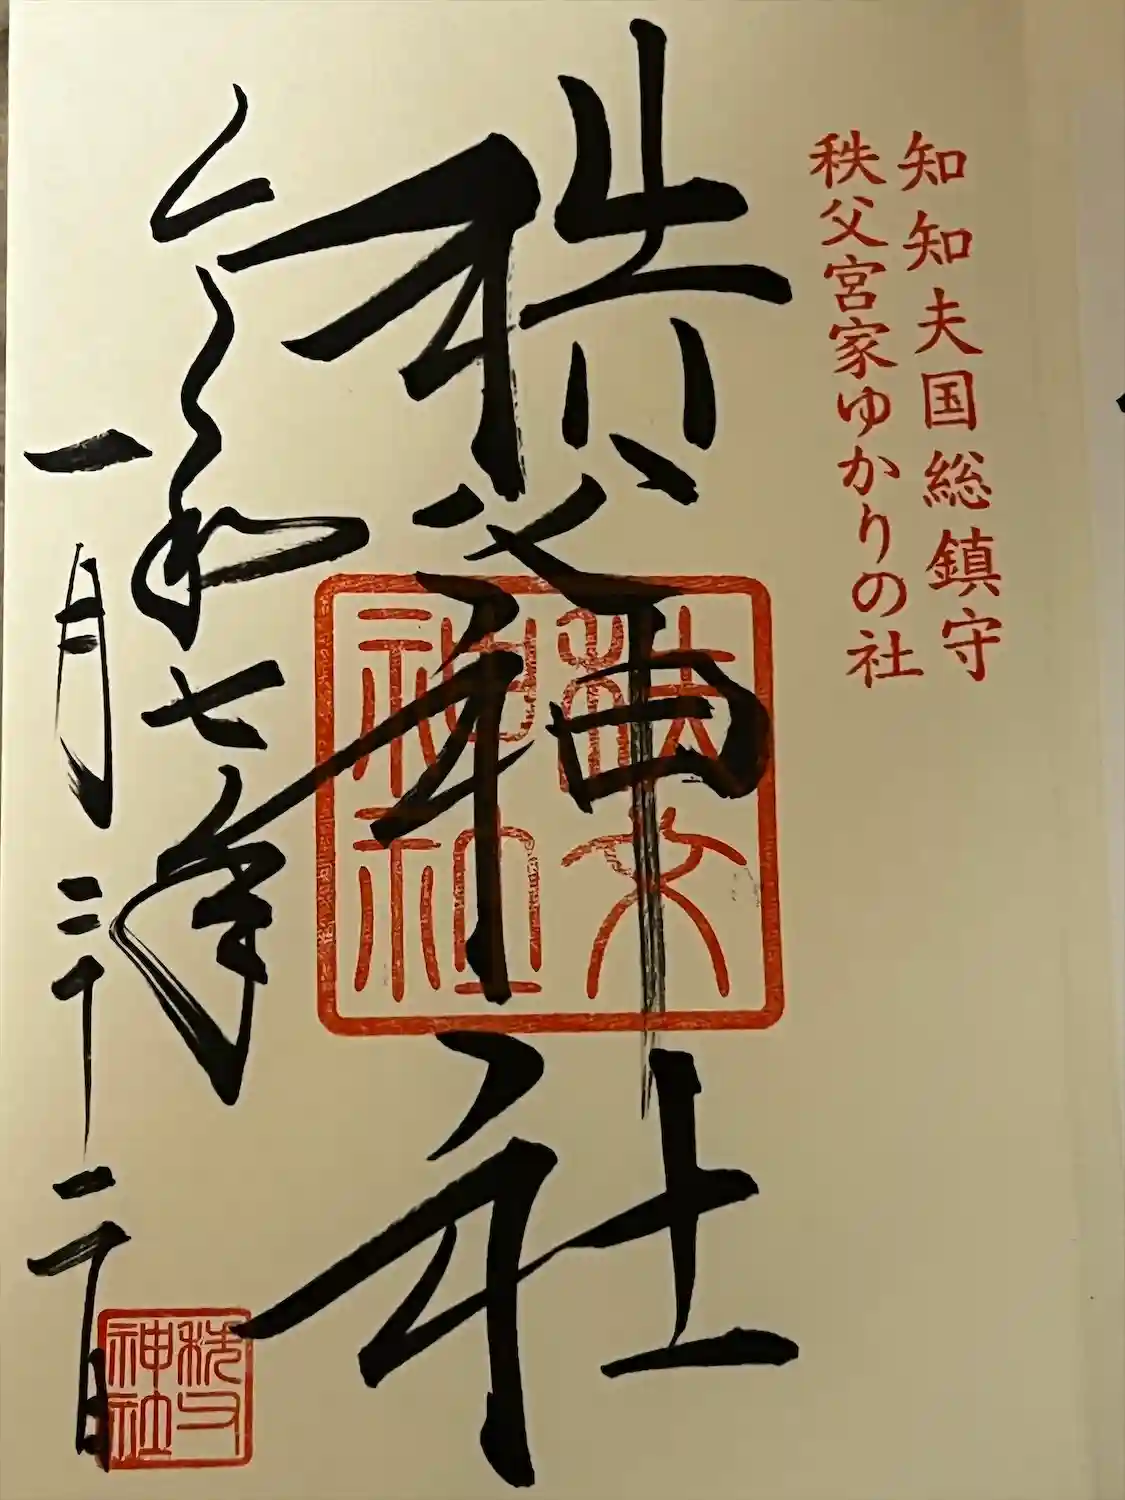 知知夫国総鎮守
秩父宮家ゆかりの社
秩父神社
秩父
神社
令和七年
一月二十二日
秩父
神社